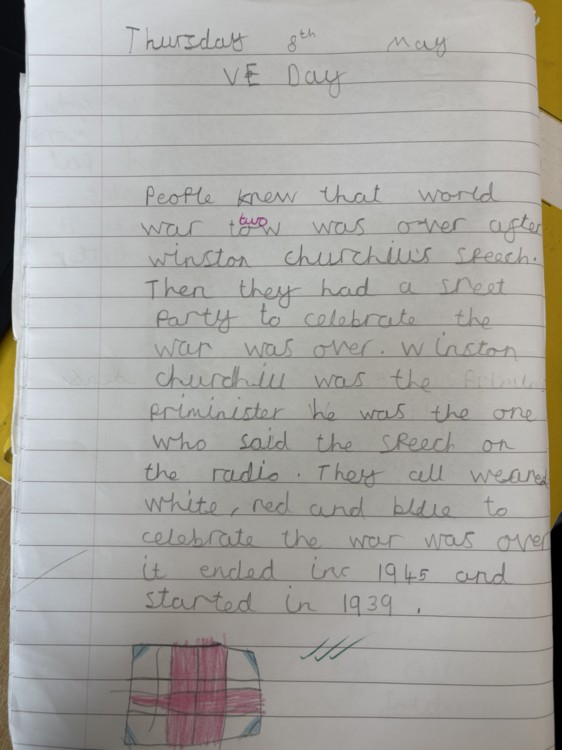 Thursday 8th May
VE Day
People knew that world
war tow two was over after
winston churchill's speech.
Then they had a sreet
party to celebrate the
war was over. Winston
churchill was the
priminister he was the one
who said the speech on
the radio. They all weared
white, red and bldue to
celebrate the war was over
it ended inc 1945 and
started in 1939.